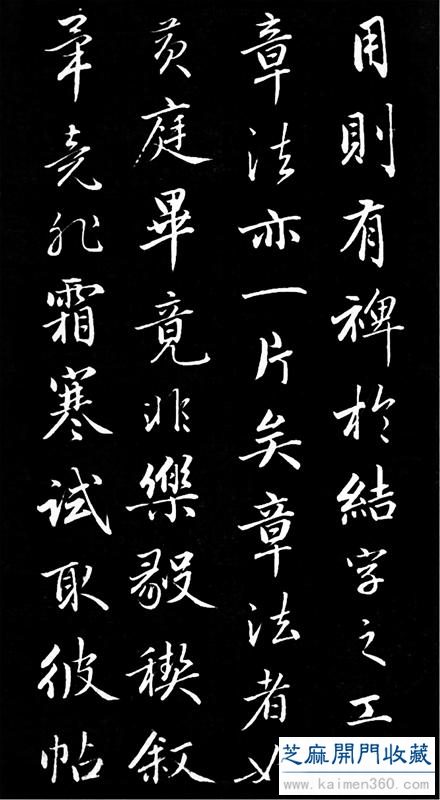 用則有裨於結字之工
章法亦一片矣章法者
黄庭畢竟非樂毅稧叙
畢竟非霜寒試取彼帖
芝麻開門收藏
www.kaimen360.com